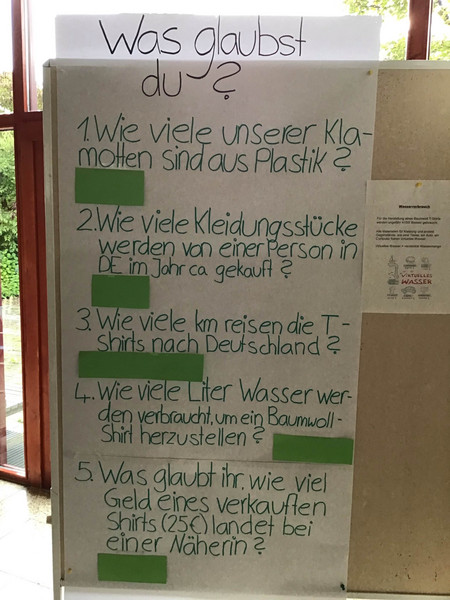 Was glaubst
du ?
1. Wie viele unserer Kla-
motten sind aus Plastik ?
2. Wie viele Kleidungsstücke
werden von einer Person in
DE im Jahr ca gekauft ?
3. Wie viele km reisen die T-
Shirts nach Deutschland ?
4. Wie viele Liter Wasser wer-
den verbraucht, um ein Baumwoll-
Shirt herzustellen ?
5. Was glaubt ihr, wie viel
Geld eines verkauften
Shirts (25€) landet bei
einer Näherin ?
VIRTUELLES
WASSER